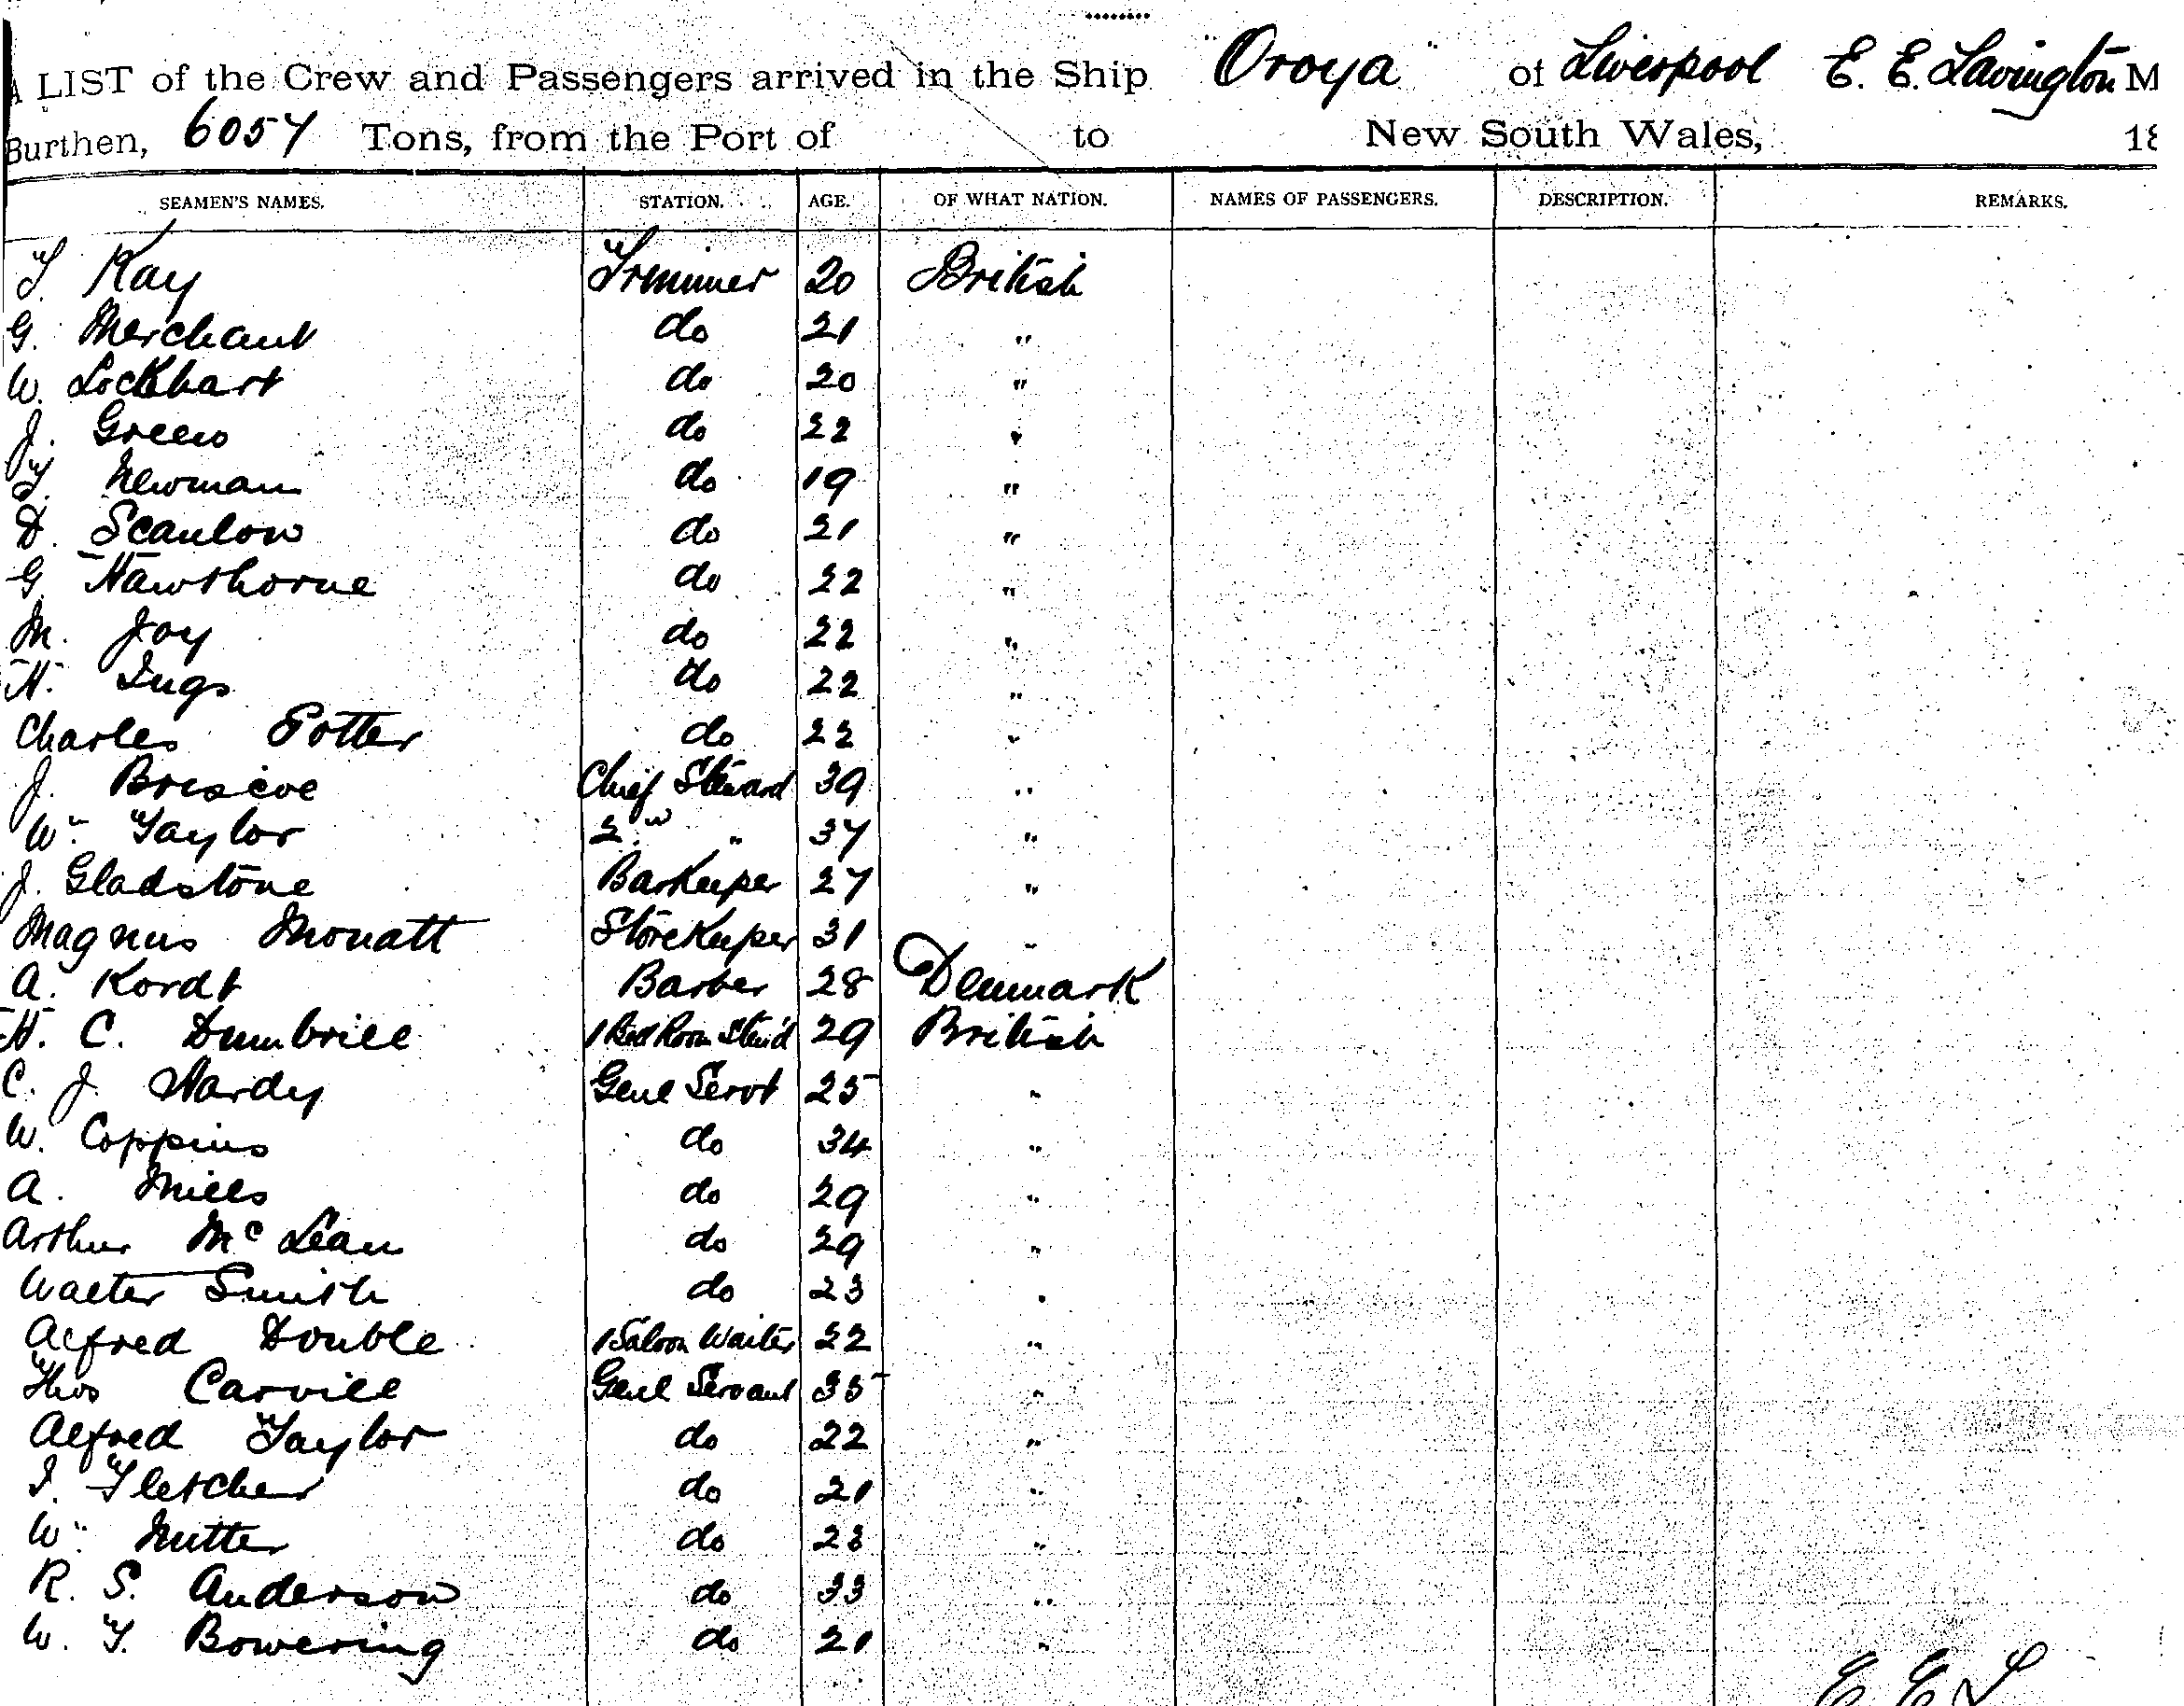 A LIST of the Crew and Passengers arrived in the Ship "Oroya" of Liverpool E. E. Lavington M
Burthen, 6057 Tons, from the Port of to New South Wales, 18
SEAMEN'S NAMES. STATION. AGE. OF WHAT NATION. NAMES OF PASSENGERS. DESCRIPTION. REMARKS.
T. Kay Trimmer 20 British
G. Merchant do 21 "
W. Lockhart do 20 "
J. Green do 22 "
T. Newman do 19 "
D. Scanlon do 21 "
G. Hawthorne do 22 "
M. Joy do 22 "
H. do 22 "
Charles Potter do 22 "
J. Briscoe Chief Steward 39 "
Wm Taylor 2nd " 37 "
J. Gladstone BarKeeper 27 "
Magnus Mouatt StoreKeeper 31 "
A. Kordt Barber 28 Denmark
H. C. Dumbrill 1 Bed Room Stew'd 29 British
C. J. Hardy Genl Servt 25 "
W. Coppins do 34 "
A. Mills do 29 "
Arthur McLean do 29 "
Walter Smith do 23 "
Alfred Double 1 Saloon Waiter 22 "
Thos Carvill Genl Servant 35 "
Alfred Taylor do 22 "
I. Fletcher do 21 "
Wm Nutter do 23 "
R. S. Anderson do 33 "
W. T. Bowering do 21 "
E E L